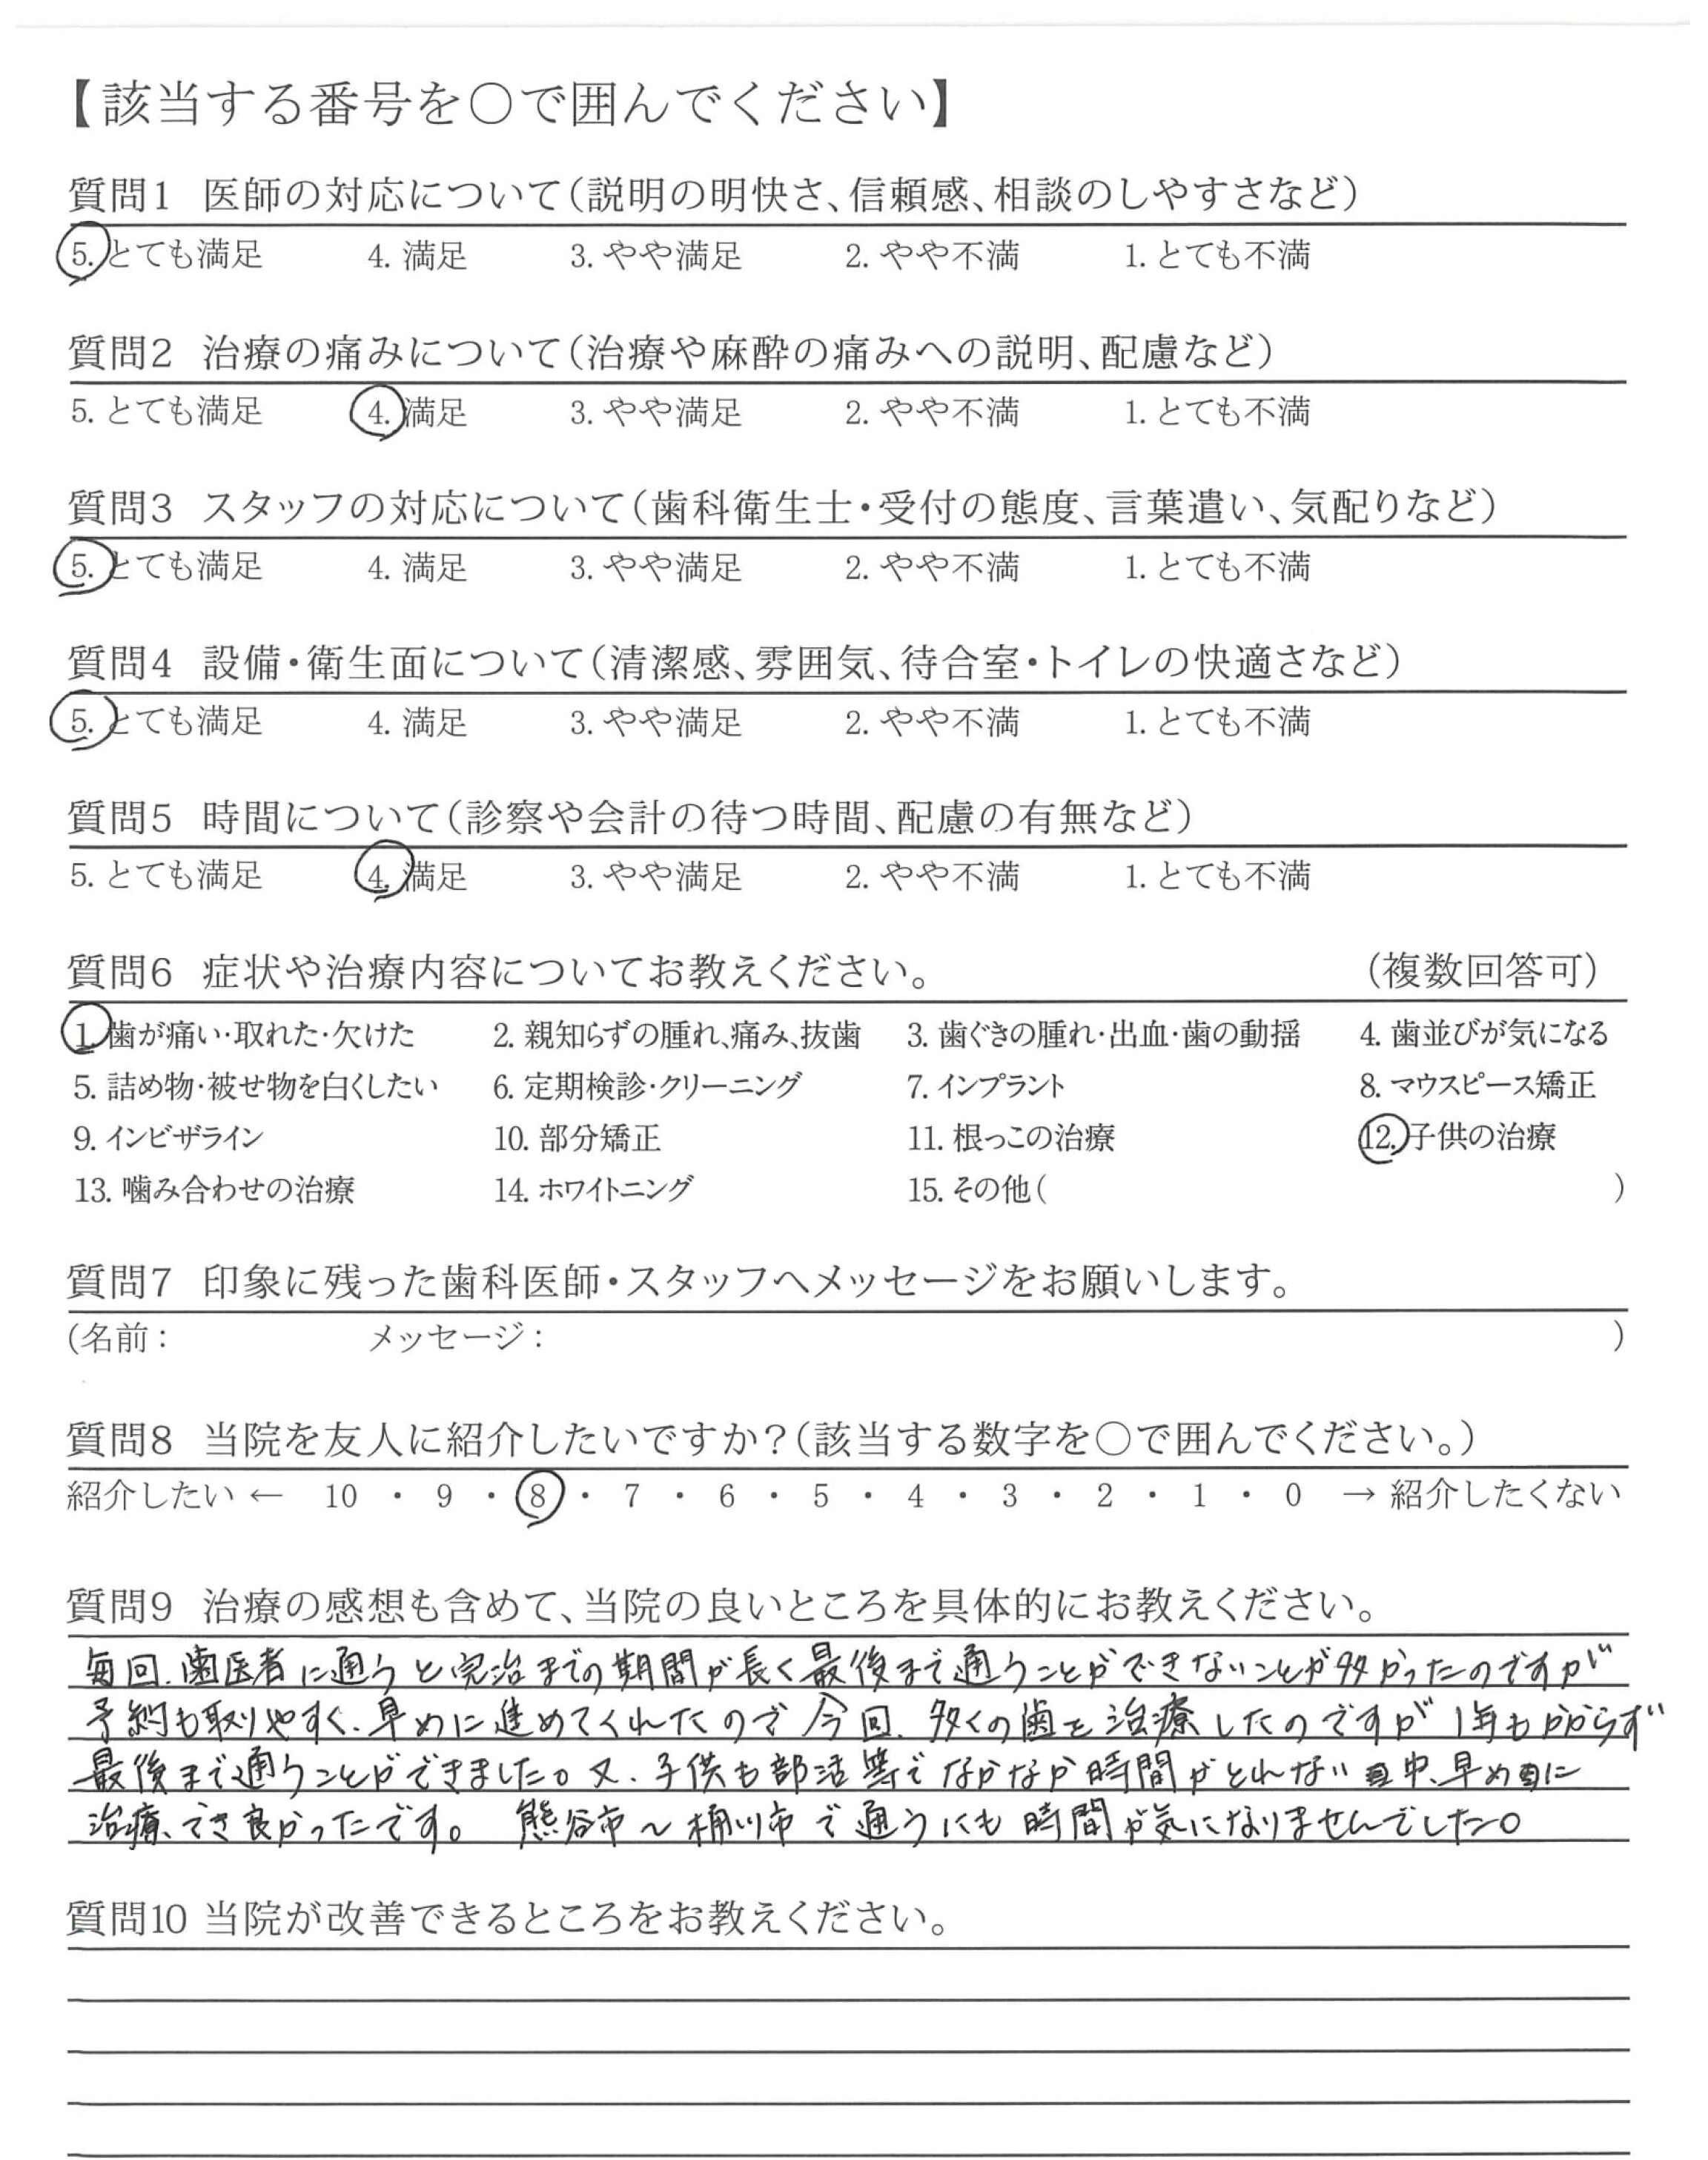 【該当する番号を○で囲んでください】
質問1 医師の対応について(説明の明快さ、信頼感、相談のしやすさなど)
5. とても満足 4. 満足 3. やや満足 2. やや不満 1. とても不満
質問2 治療の痛みについて(治療や麻酔の痛みへの説明、配慮など)
5. とても満足 4. 満足 3. やや満足 2. やや不満 1. とても不満
質問3 スタッフの対応について(歯科衛生士・受付の態度、言葉遣い、気配りなど)
5. とても満足 4. 満足 3. やや満足 2. やや不満 1. とても不満
質問4 設備・衛生面について(清潔感、雰囲気、待合室・トイレの快適さなど)
5. とても満足 4. 満足 3. やや満足 2. やや不満 1. とても不満
質問5 時間について(診察や会計の待つ時間、配慮の有無など)
5. とても満足 4. 満足 3. やや満足 2. やや不満 1. とても不満
質問6 症状や治療内容についてお教えください。 (複数回答可)
1. 歯が痛い・取れた・欠けた 2. 親知らずの腫れ、痛み、抜歯 3. 歯ぐきの腫れ・出血・歯の動揺 4. 歯並びが気になる
5. 詰め物・被せ物を白くしたい 6. 定期検診・クリーニング 7. インプラント 8. マウスピース矯正
9. インビザライン 10. 部分矯正 11. 根っこの治療 12. 子供の治療
13. 噛み合わせの治療 14. ホワイトニング 15. その他( )
質問7 印象に残った歯科医師・スタッフへメッセージをお願いします。
(名前: メッセージ: )
質問8 当院を友人に紹介したいですか?(該当する数字を○で囲んでください。)
紹介したい ← 10 ・ 9 ・ 8 ・ 7 ・ 6 ・ 5 ・ 4 ・ 3 ・ 2 ・ 1 ・ 0 → 紹介したくない
質問9 治療の感想も含めて、当院の良いところを具体的にお教えください。
毎回、歯医者に通うと完治までの期間が長く最後まで通うことができないことが多かったのですが
予約も取りやすく、早めに進めてくれたので今回、多くの歯を治療したのですが1年もかからず
最後まで通うことができました。又、子供も部活等でなかなか時間がとれない中、早めに
治療、でき良かったです。 熊谷市〜桶川市で通うにも時間が気になりませんでした。
質問10 当院が改善できるところをお教えください。